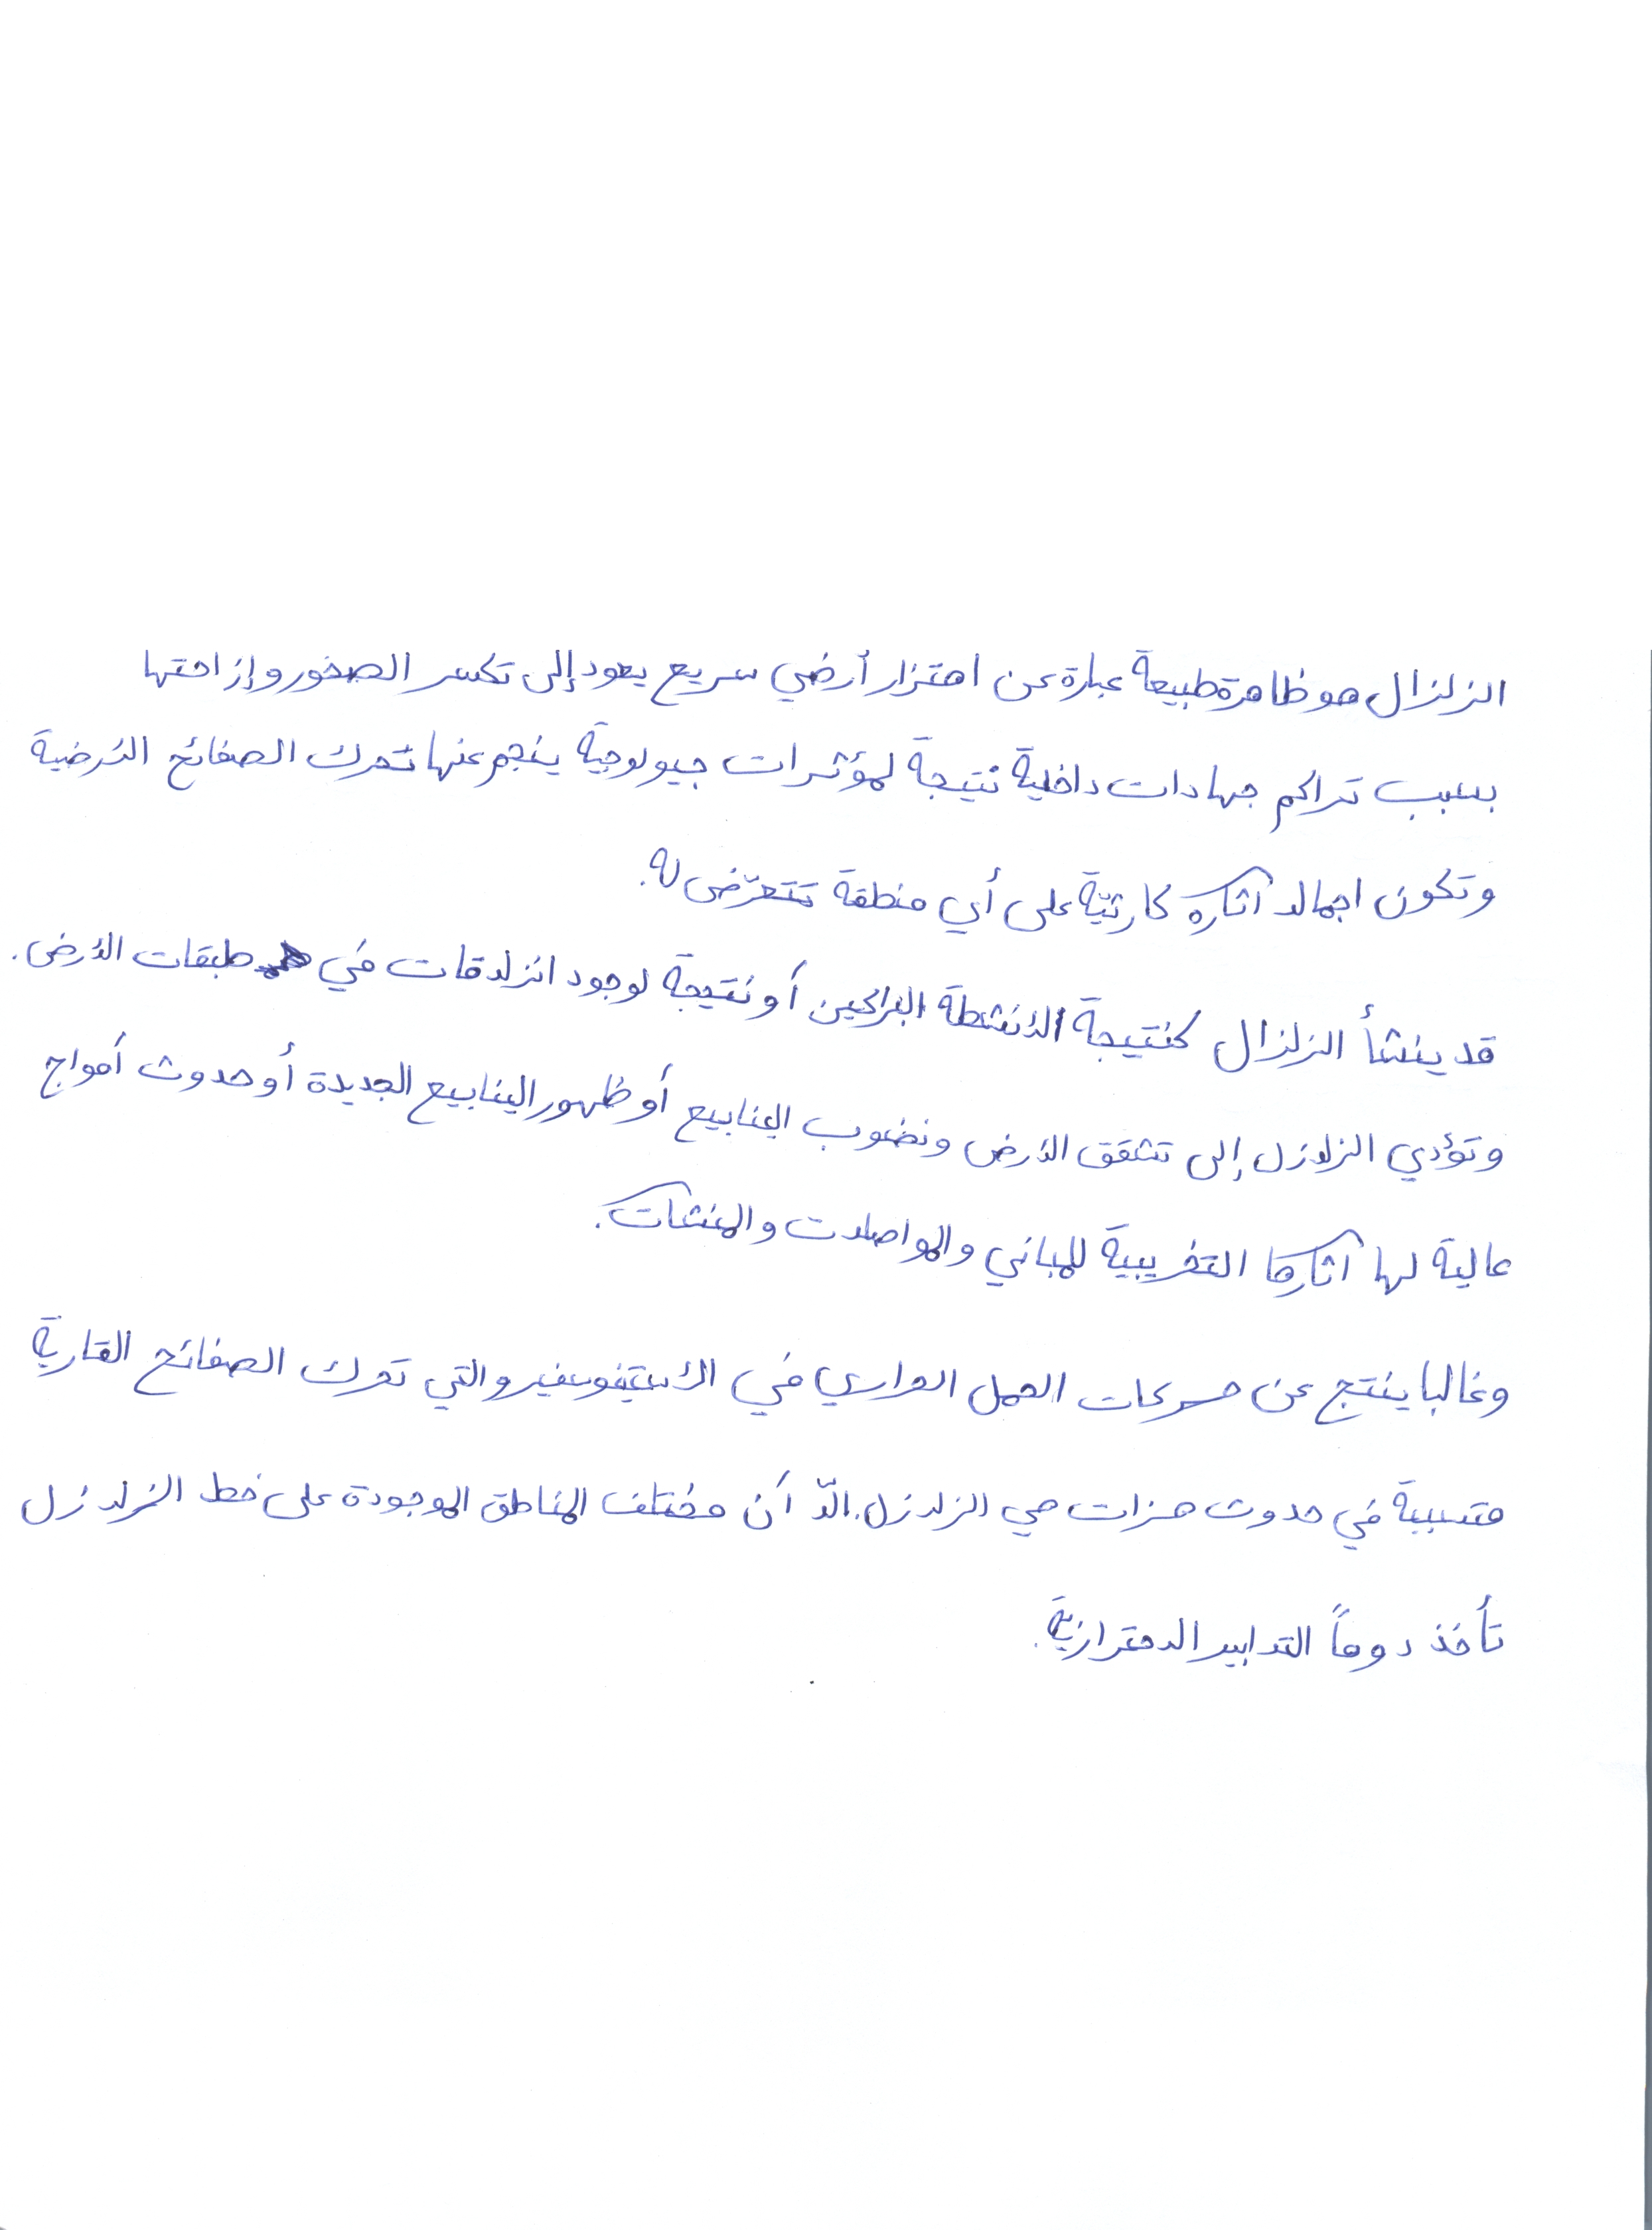 الزلزال هو ظاهرة طبيعة عبارة عن اهتزاز أرضي سريع يعود إلى تكسر الصخور وإزاحتها
بسبب تراكم جهادات داخلية نتيجة لمؤثرات جيولوجية ينجم عنها تحرك الصفائح الأرضية
وتكون اجمالا آثاره كارثيّة على أي منطقة تتعرّض له.
قد ينشأ الزلزال كنتيجة الأنشطة البراكين أو نتيجة لوجود انزلاقات في طبقات الأرض.
وتؤدي الزلازل إلى تشقق الأرض ونضوب الينابيع أو ظهور الينابيع الجديدة أو حدوث أمواج
عالية لها آثارها التخريبية للمباني والمواصلات والمنشآت.
وغالبا ينتج عن حركات الحمل الحراري في الأسيتينوسفير والتي تحرك الصفائح القارية
متسببة في حدوث هزات هي الزلازل. الاّ أن مختلف المناطق الموجودة على خط الزلازل
تأخذ دوماً التدابير الاحترازية.